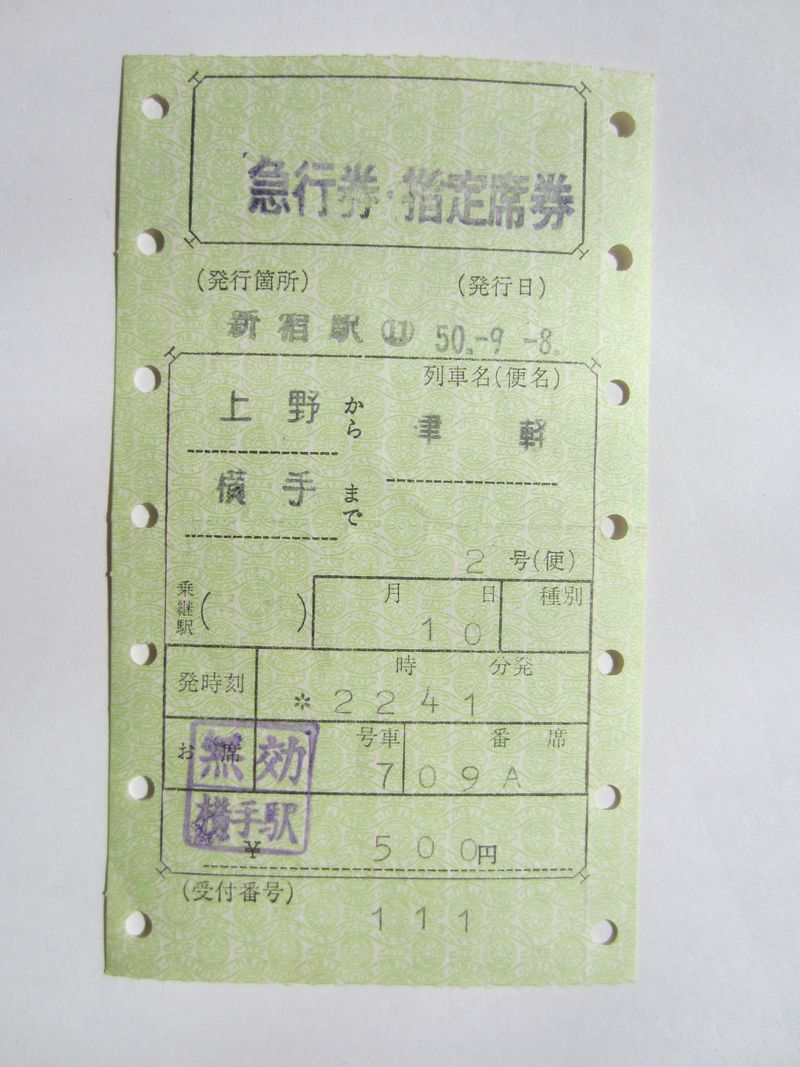 急行券・指定席券
(発行箇所) (発行日)
新宿駅⑪ 50.-9.-8.
列車名(便名)
上野から 津軽
横手まで
2号(便)
乗継駅( ) 月 日 種別
10
発時刻 時 分発
*2241
お席 号車 番 席
7 09A
無効
横手駅
¥ 500円
(受付番号)
111